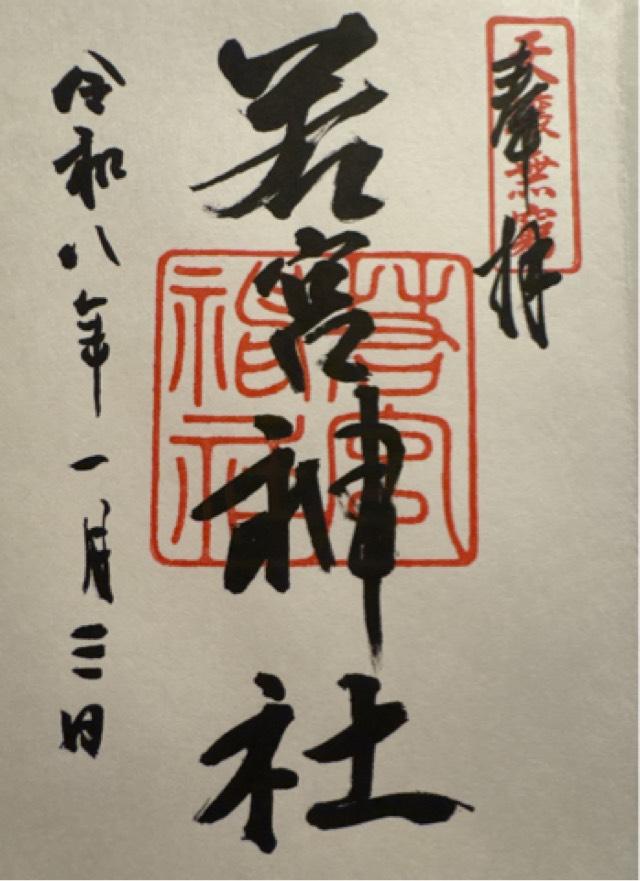 奉拝
天壌無窮
若宮神社
若宮神社
令和八年一月三日